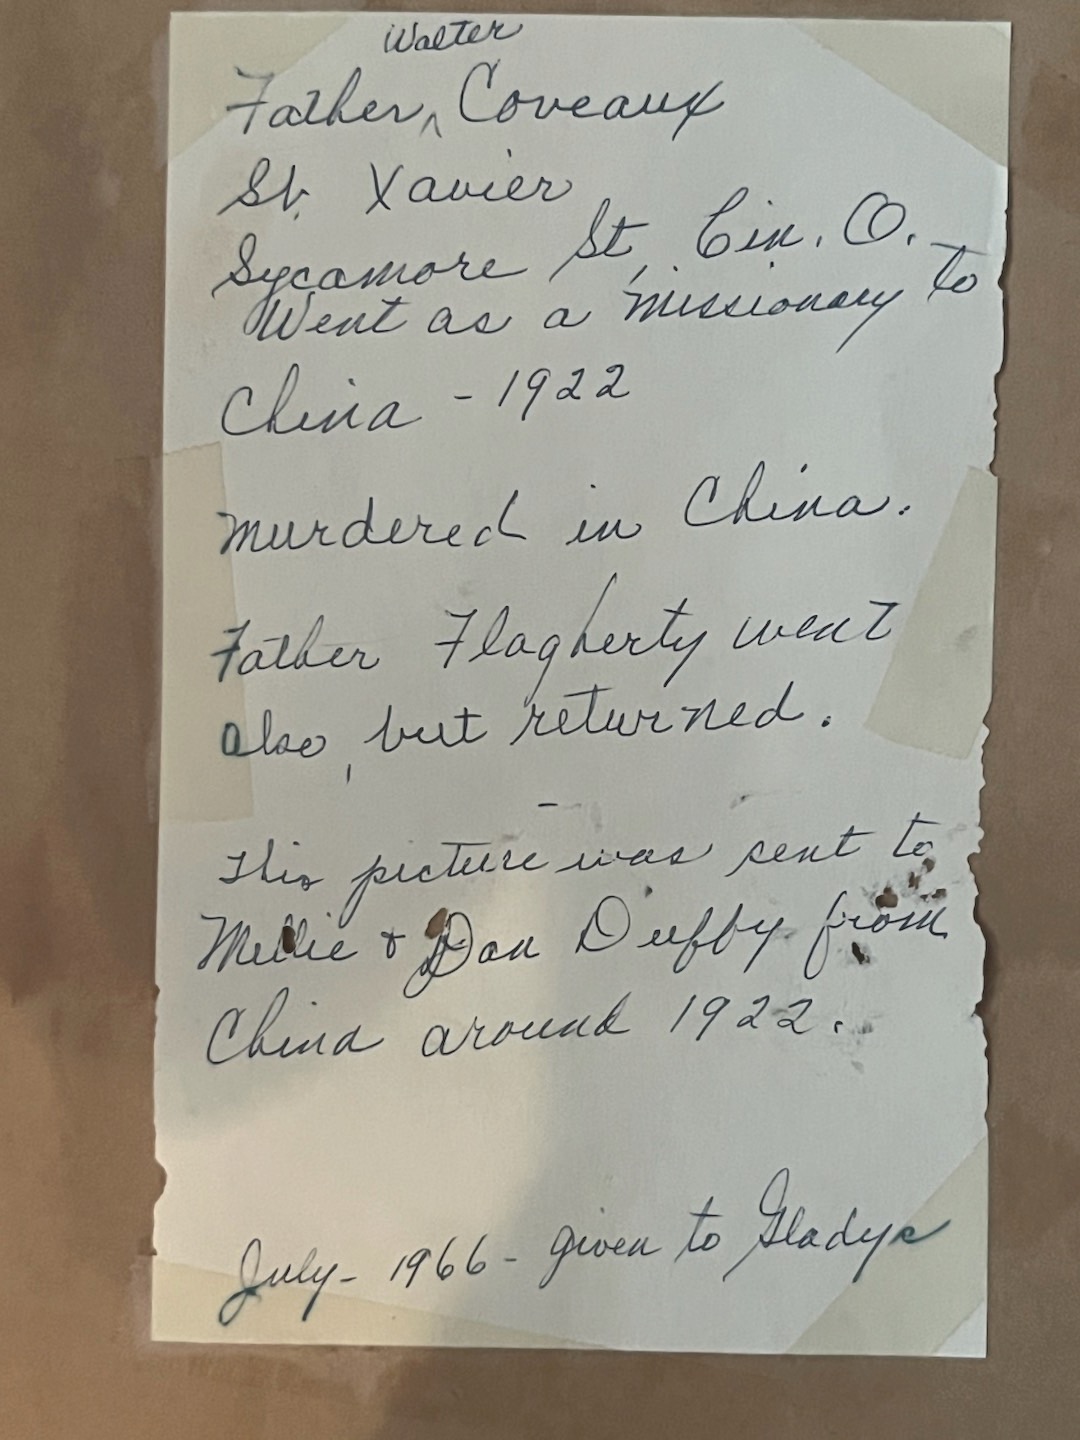 Walter
Father ^ Coveaux
St. Xavier
Sycamore St, Cin. O.
Went as a missionary to
China - 1922
Murdered in China.
Father Flagherty went
also, but returned.
-
This picture was sent to
Mellie + Dan Duffy from
China around 1922.
July - 1966 - given to Gladys